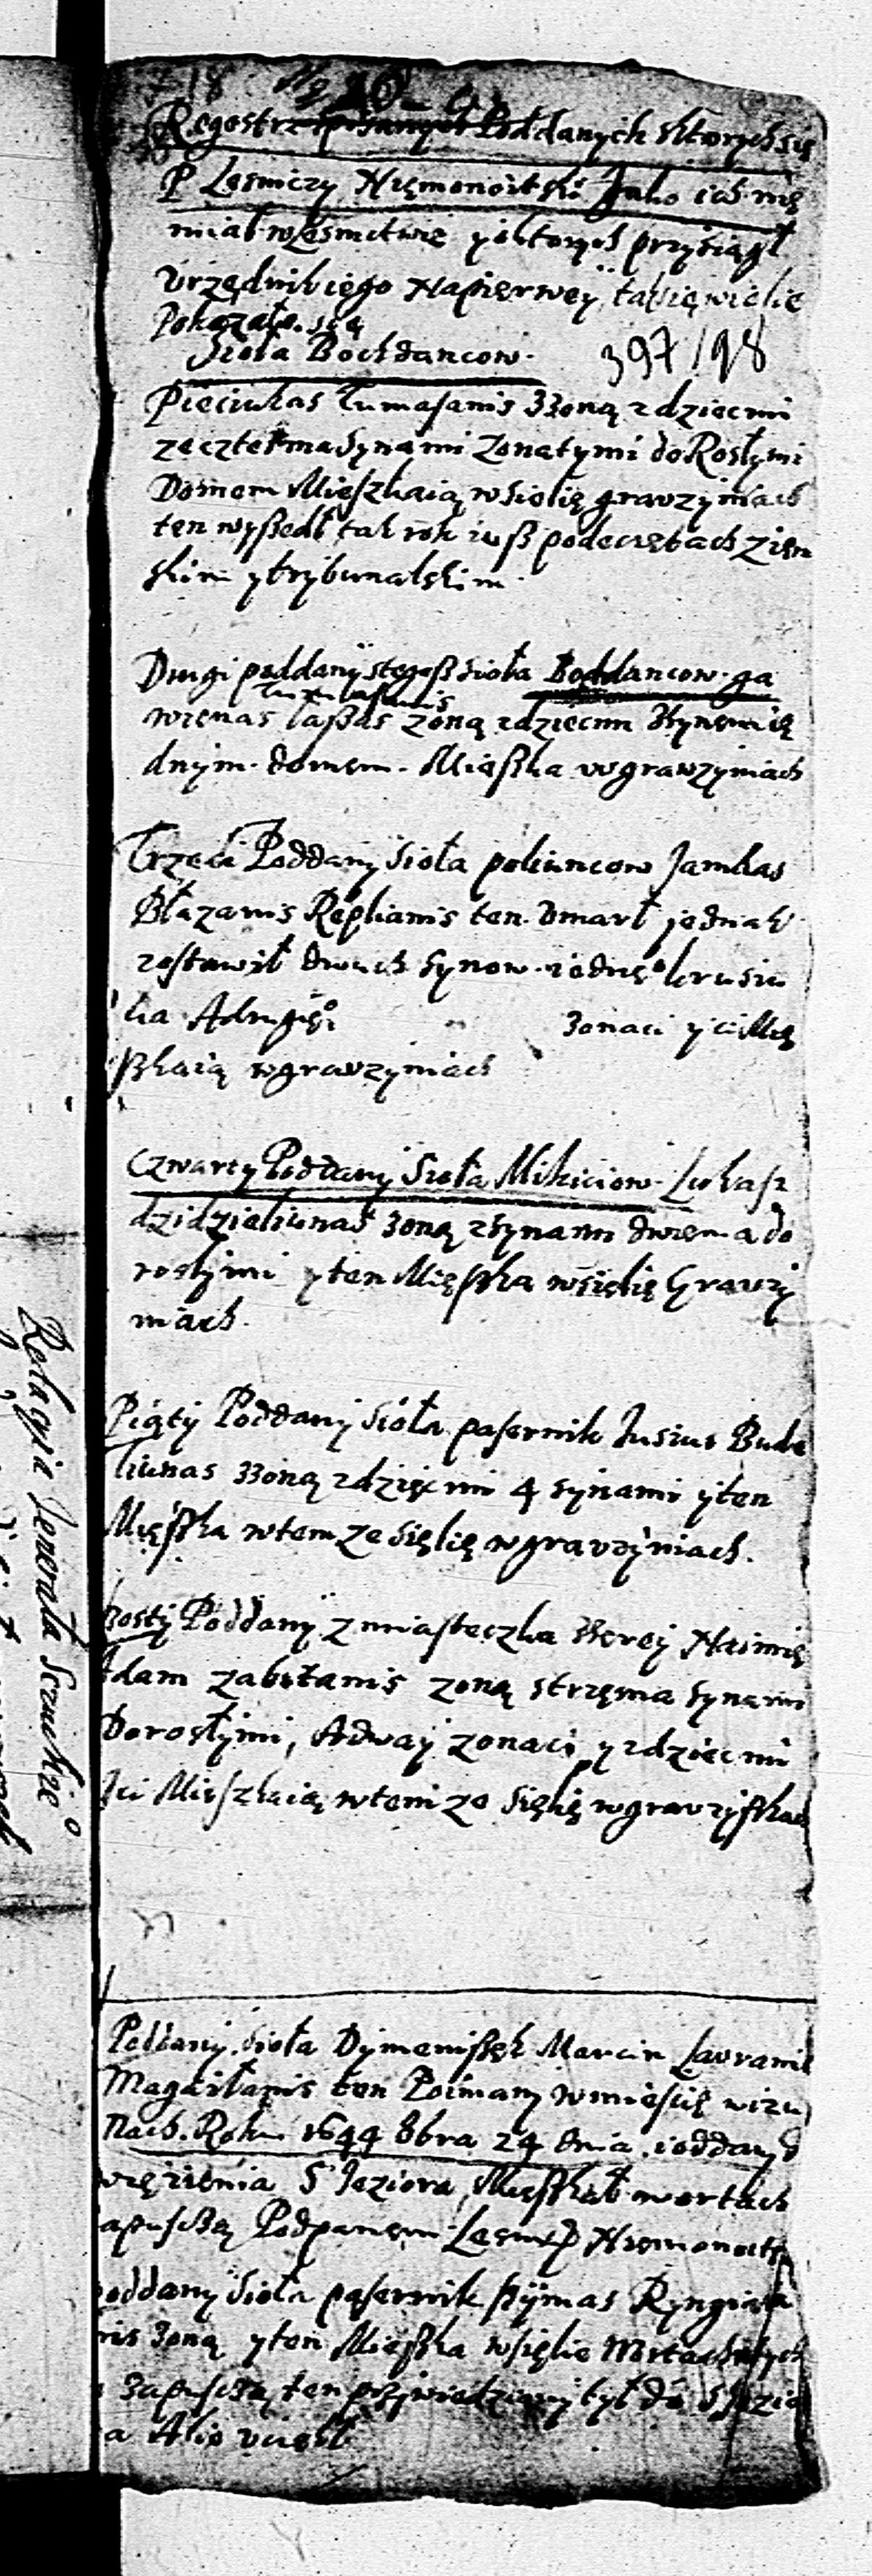 Regestr spisanych Poddanych ktorych się
P Lesniczy Niemonoitski Jako ich nię
miał w Lesnictwie y o ktorych przysiągł
Vrzędnik iego Napierwey, tak się wielie
Pokazało. się
Sioła Bochdancow. 397/98
Pieciukas Tumasanis z Zoną z dziecmi
ze czterma Synami Zonatymi do Rosłymi
Domem Mieszkaią w sielię grauzyniach
ten wyszedł tak rok iusz po decretach Ziem
skim y trybunalskim.
Drugi poddany s tegosz Sioła Boddancow. ga
wrenas Laszas zoną z dziecmi Synem ie
dnym. domem. Mieszka w grawzyniach
Trzeci Poddany Sioła poliuncow Jamkas
Błazanis Replianis ten. Vmarł jednak
zostawił dwuch Synow. iednego Krusiu
ka A drugiego Zonaci y ci Mię
szkaią w grauzyniach
Czwarty Poddany Sioła Mikiciow. Lukasz
dzidzieliunas zoną z synami dwiema do
rosłymi y ten Mięszka w sielię Grauzy
niach.
Piąty Poddany Sioła pasernik Jusius Bude
liunas z Zoną z dzięcmi 4 synami y ten
Mięszka w tem ze Sięlię w grauzyniach.
Szosty Poddany z miasteczka Serey Naimię
Adam zabełanis zoną s trzema Synami
Dorosłymi, A dway zonaci y z dziecmi
Ici Mieszkaią w tem ze Sięlię w grauzyszkach
Poddany. Sioła Dymeniszek Marcin Lauranis
Magaiłanis ten Poimany w mieście wizu
nach. Roku 1644 8bra 24 dnia. i oddany d
więzienia S Jeziora, Mięszkał w ortach
zapuszczą Pod panem Lesni. P Niemonoits
Poddany Sioła pasernik szymas Ryngiela
nis zoną y ten Mieszka w sięlie
zapuszczą, ten przywiedziony był do S Jezio
a Alie uciekł
Relacyia Jenerała